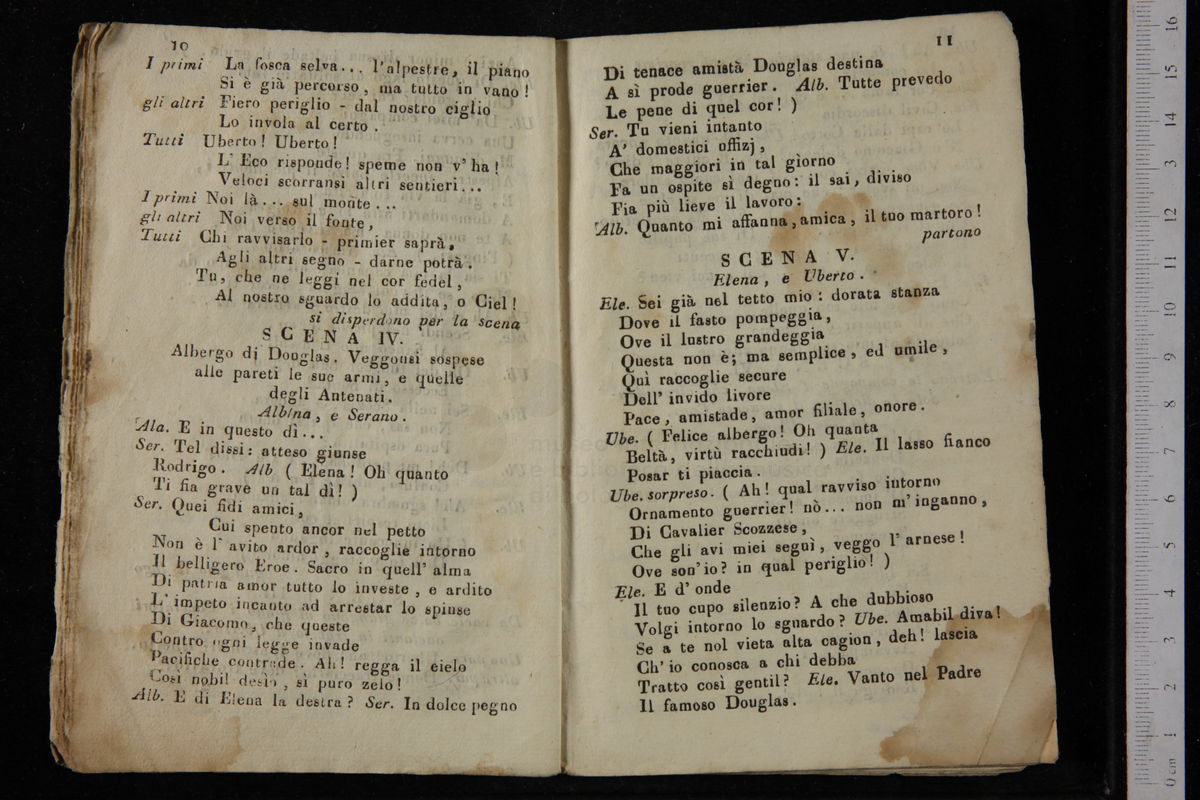 10
I primi La fosca selva... l'alpestre, il piano
Si è già percorso, ma tutto in vano!
gli altri Fiero periglio - dal nostro ciglio
Lo invola al certo.
Tutti Uberto! Uberto!
L' Eco risponde! speme non v'ha!
Veloci scorransi altri sentieri...
I primi Noi là... sul monte...
gli altri Noi verso il fonte,
Tutti Chi ravvisarlo - primier saprà,
Agli altri segno - darne potrà.
Tu, che ne leggi nel cor fedel,
Al nostro sguardo lo addita, o Ciel!
si disperdono per la scena
SCENA IV.
Albergo di Douglas. Veggonsi sospese
alle pareti le sue armi, e quelle
degli Antenati.
Albina, e Serano.
Ala. E in questo dì...
Ser. Tel dissi: atteso giunse
Rodrigo. Alb ( Elena! Oh quanto
Ti fia grave un tal dì! )
Ser. Quei fidi amici,
Cui spento ancor nel petto
Non è l'avito ardor, raccoglie intorno
Il belligero Eroe. Sacro in quell' alma
Di patria amor tutto lo investe, e ardito
L'impeto incauto ad arrestar lo spinse
Di Giacomo, che queste
Contro ogni legge invade
Pacifiche contrade. Ah! regga il cielo
Così nobil desìo, sì puro zelo!
Alb. E di Elena la destra? Ser. In dolce pegno
11
Di tenace amistà Douglas destina
A sì prode guerrier. Alb. Tutte prevedo
Le pene di quel cor! )
Ser. Tu vieni intanto
A' domestici offizj,
Che maggiori in tal giorno
Fa un ospite sì degno: il sai, diviso
Fia più lieve il lavoro:
Alb. Quanto mi affanna, amica, il tuo martoro!
partono
SCENA V.
Elena, e Uberto.
Ele. Sei già nel tetto mio: dorata stanza
Dove il fasto pompeggia,
Ove il lustro grandeggia
Questa non è; ma semplice, ed umile,
Quì raccoglie secure
Dell' invido livore
Pace, amistade, amor filiale, onore.
Ube. ( Felice albergo! Oh quanta
Beltà, virtù racchiudi! ) Ele. Il lasso fianco
Posar ti piaccia.
Ube. sorpreso. ( Ah! qual ravviso intorno
Ornamento guerrier! nò... non m'inganno,
Di Cavalier Scozzese,
Che gli avi miei seguì, veggo l'arnese!
Ove son'io? in qual periglio! )
Ele. E d'onde
Il tuo cupo silenzio? A che dubbioso
Volgi intorno lo sguardo? Ube. Amabil diva!
Se a te nol vieta alta cagion, deh! lascia
Ch'io conosca a chi debba
Tratto così gentil? Ele. Vanto nel Padre
Il famoso Douglas.